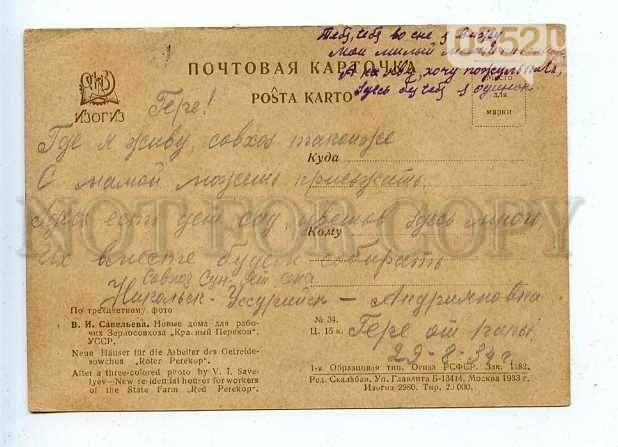 Тебя, тебя во сне я вижу
Мой милый
хочу
Здесь без тебя я одинок
ПОЧТОВАЯ КАРТОЧКА
POŜTA KARTO
Место
для
марки
ИЗОГИЗ
Гере!
Где я живу, совхоз такой же
Куда
С мамой можешь приезжать.
Здесь есть цвет сад, цветов здесь много,
Кому
Их вместе будем собирать
Совхоз Сун Ят Сена
Никольск-Уссурийск - Андрияновка
Гере от папы
29-8-34 г
По трехцветному фото
В. И. Савельева. Новые дома для рабо-
чих Зерносовхоза „Красный Перекоп".
УССР.
Neue Häuser für die Arbeiter des Getreide-
sowchos „Roter Perekop".
After a three-colored photo by V. I. Save-
lyev—New residential houres for workers
of the State Farm „Red Perekop".
№ 34.
Ц. 15 к.
1-я Образцовая тип. Огиза РСФСР. Зак. 1182.
Ред. Скальбан. Уп. Главлита Б-13414. Москва 1933 г.
Изогиз 2980. Тир. 25000.
NOT FOR COPY